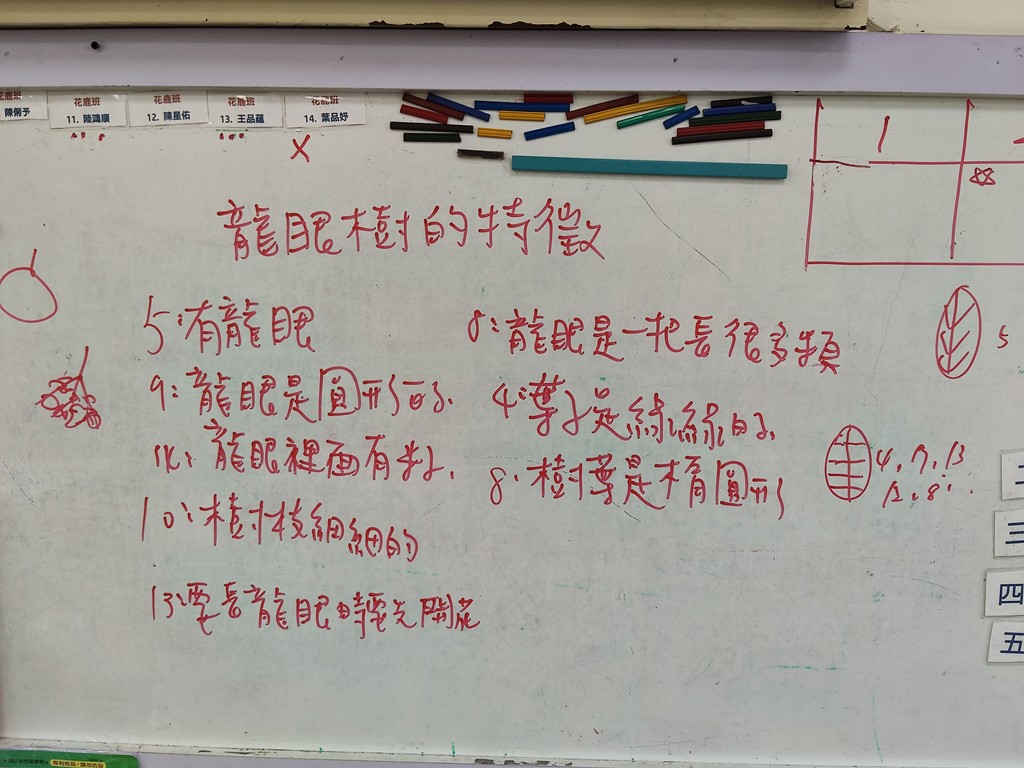 花鹿班
陳俐予
花鹿班
11. 陸鴻順
花鹿班
12. 陳星佑
花鹿班
13. 王品蘊
花鹿班
14. 葉品妤
X
1
龍眼樹的特徵
5:有龍眼
9:龍眼是圓形的.
14:龍眼裡面有籽.
10:樹枝細細的
13:要長龍眼時要先開花
8:龍眼是一把長很多顆
4:葉子是綠綠的.
8:樹葉是橢圓形
5
4.7.13
12.8.
三
四
五